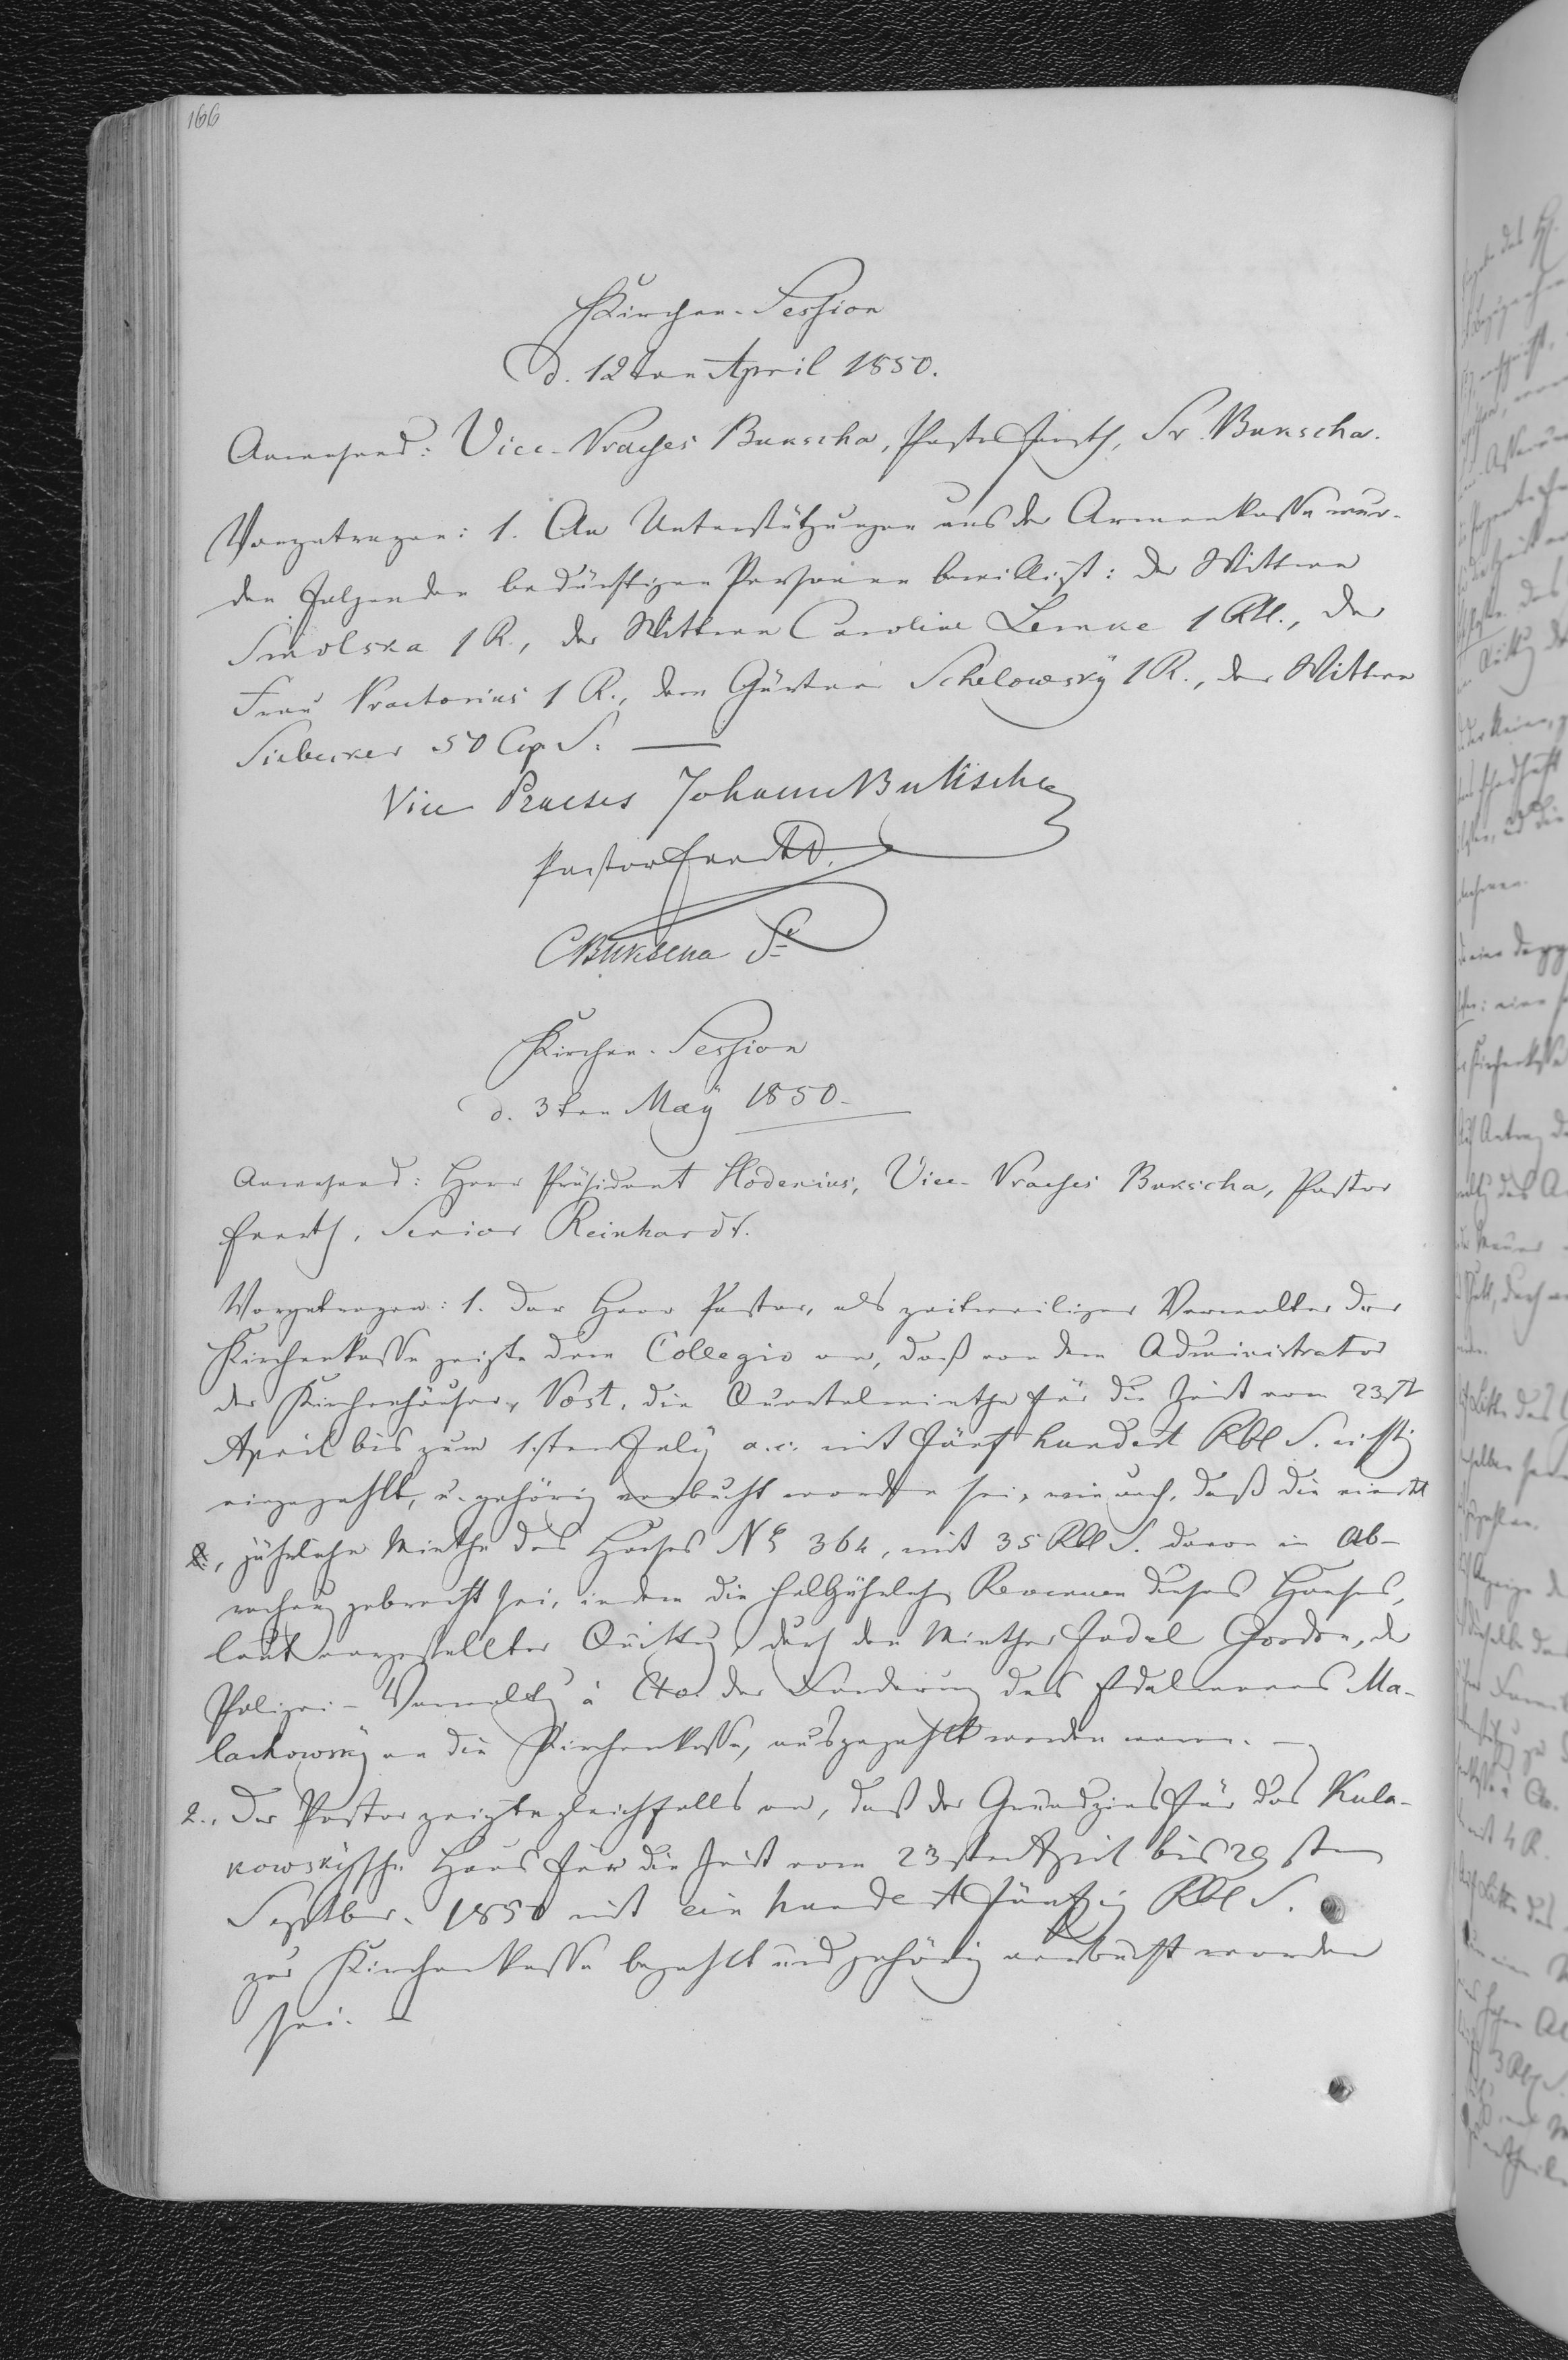 166
Kirchen-Session
d. 12ten April 1850.
Anwesend: Vice-Praeses Bukscha, Pastor Everth, Sr. Bukscha.
Vorgetragen: 1. An Unterstützungen aus der Armenkasse wur-
den folgenden bedürftigen Personen bewilligt: der Wittwe
Smolska 1 R., der Wittwe Caroline Lemke 1 Rbl., der
Frau Praetorius 1 R., dem Gärtner Schelowsky 1 R., der Wittwe
Siebeker 50 Cop. S. —
Vice Praeses Johann Bukscha
Pastor Everth
C Bukscha Sr
Kirchen-Session
d. 3ten Maÿ 1850.
Anwesend: Herr Präsident Hodenius, Vice-Praeses Bukscha, Pastor
Everth, Senior Reinhardt.
Vorgetragen: 1. Der Herr Pastor, als zeitweiliger Verwalter der
Kirchenkasse zeigte dem Collegio an, daß von dem Administrator
der Kirchenhäuser, Vost, die Quartalmiethe für die Zeit vom 23st
April bis zum 1sten July a. c. mit fünf hundert Rbl S. richtig
eingezahlt, u. gehörig verbucht worden sei, wie auch, daß die viertel
jährliche Miethe des Hauses No 364, mit 35 Rbl S. davon in Ab-
rechnung gebracht sei, indem die halbjährliche Revenuen dieses Hauses,
laut vorgestellter Quittung, durch den Miether Jodel Gordon, der
Polizei-Verwaltg à Cto der Forderung des Edelmanns Ma-
lachowsky an die Kirchenkasse, ausgezahlt worden waren. —
2., Der Pastor zeigte gleichfalls an, daß der Grundzins für das Kula-
kowskysche Haus für die Zeit vom 23sten April bis 29sten
Septber. 1850 mit ein hundert fünfzig Rbl S.
zur Kirchenkasse bezahlt und gehörig verbucht worden
sei. —